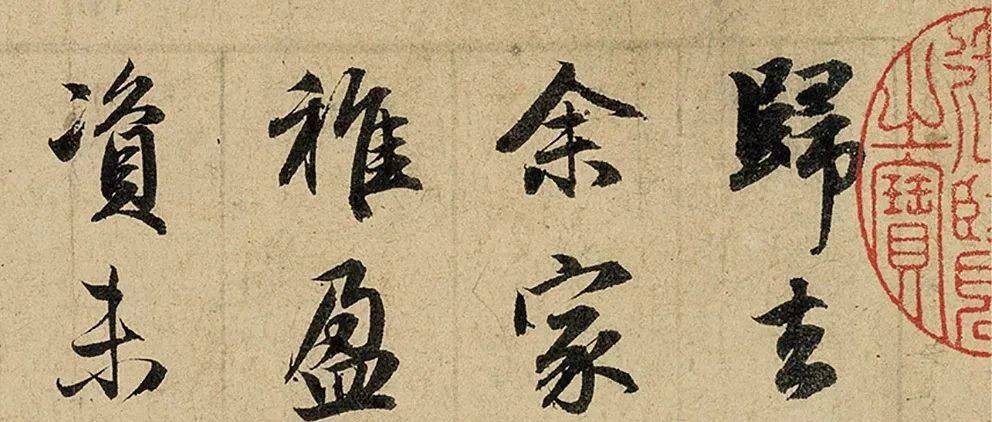 歸去
余家
稚盈
資未
之寶